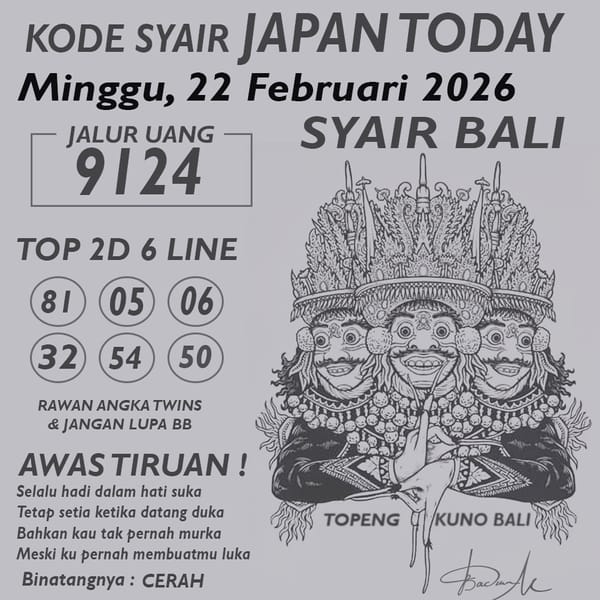 KODE SYAIR JAPAN TODAY
Minggu, 22 Februari 2026
SYAIR BALI
JALUR UANG
9124
TOP 2D 6 LINE
81 05 06
32 54 50
RAWAN ANGKA TWINS
& JANGAN LUPA BB
AWAS TIRUAN !
Selalu hadi dalam hati suka
Tetap setia ketika datang duka
Bahkan kau tak pernah murka
Meski ku pernah membuatmu luka
Binatangnya : CERAH
TOPENG KUNO BALI